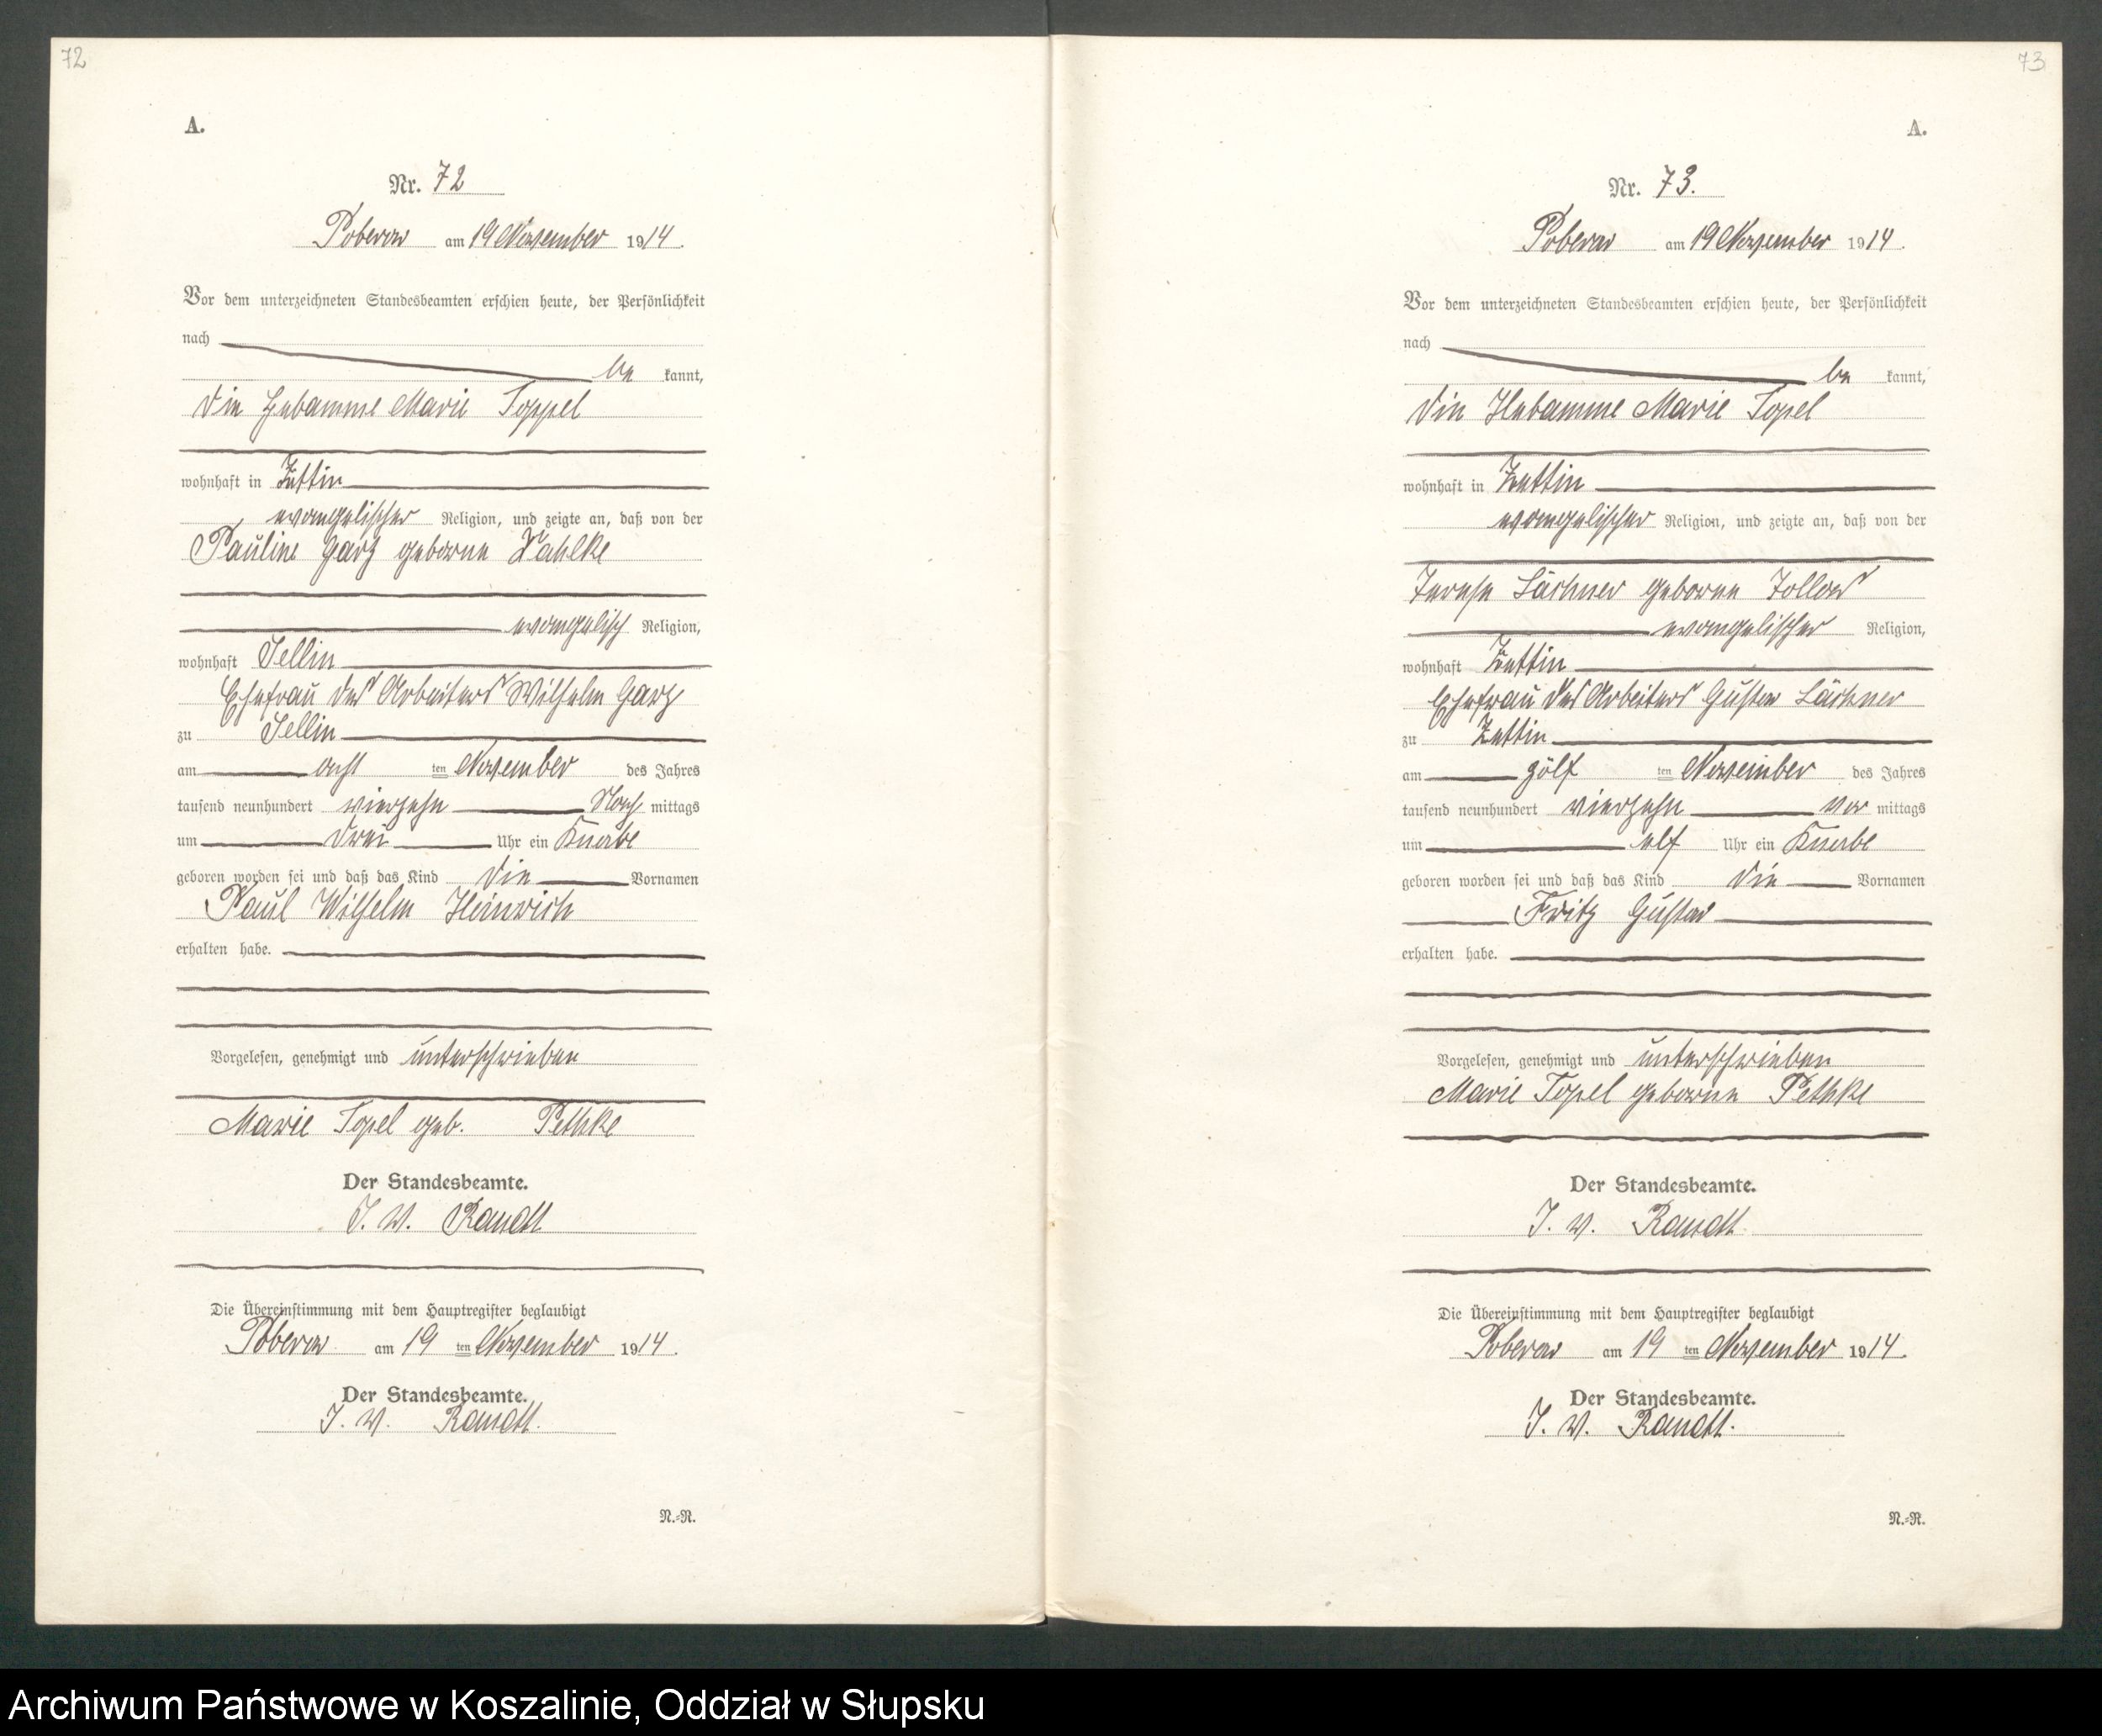 72
A.
Nr. 72
Poberow am 19 November 1914.
Vor dem unterzeichneten Standesbeamten erschien heute, der Persönlichkeit
nach
be kannt,
die Hebamme Marie Toppel
wohnhaft in Zettin
evangelischer Religion, und zeigte an, daß von der
Pauline Garz geborne Vahlke
evangelisch Religion,
wohnhaft Sellin
Ehefrau des Arbeiters Wilhelm Garz
zu Sellin
am acht ten November des Jahres
tausend neunhundert vierzehn Nach mittags
um drei Uhr ein Knabe
geboren worden sei und daß das Kind die Vornamen
Paul Wilhelm Heinrich
erhalten habe.
Vorgelesen, genehmigt und unterschrieben
Marie Topel geb. Pethke
Der Standesbeamte.
I. V. Raudt
Die Übereinstimmung mit dem Hauptregister beglaubigt
Poberow am 19 ten November 1914.
Der Standesbeamte.
I. V. Raudt.
N.=R.
73
A.
Nr. 73.
Poberow am 19 November 1914.
Vor dem unterzeichneten Standesbeamten erschien heute, der Persönlichkeit
nach
be kannt,
die Hebamme Marie Topel
wohnhaft in Zettin
evangelischer Religion, und zeigte an, daß von der
Terese Lächner geborne
evangelischer Religion,
wohnhaft Zettin
Ehefrau des Arbeiters Gustav Lächner
zu Zettin
am zölf ten November des Jahres
tausend neunhundert vierzehn vor mittags
um elf Uhr ein Knabe
geboren worden sei und daß das Kind die Vornamen
Fritz Gustav
erhalten habe.
Vorgelesen, genehmigt und unterschrieben
Marie Topel geborne Pethke
Der Standesbeamte.
I. V. Raudt
Die Übereinstimmung mit dem Hauptregister beglaubigt
Poberow am 19 ten November 1914.
Der Standesbeamte.
I. V. Raudt.
N.=R.
Archiwum Państwowe w Koszalinie, Oddział w Słupsku